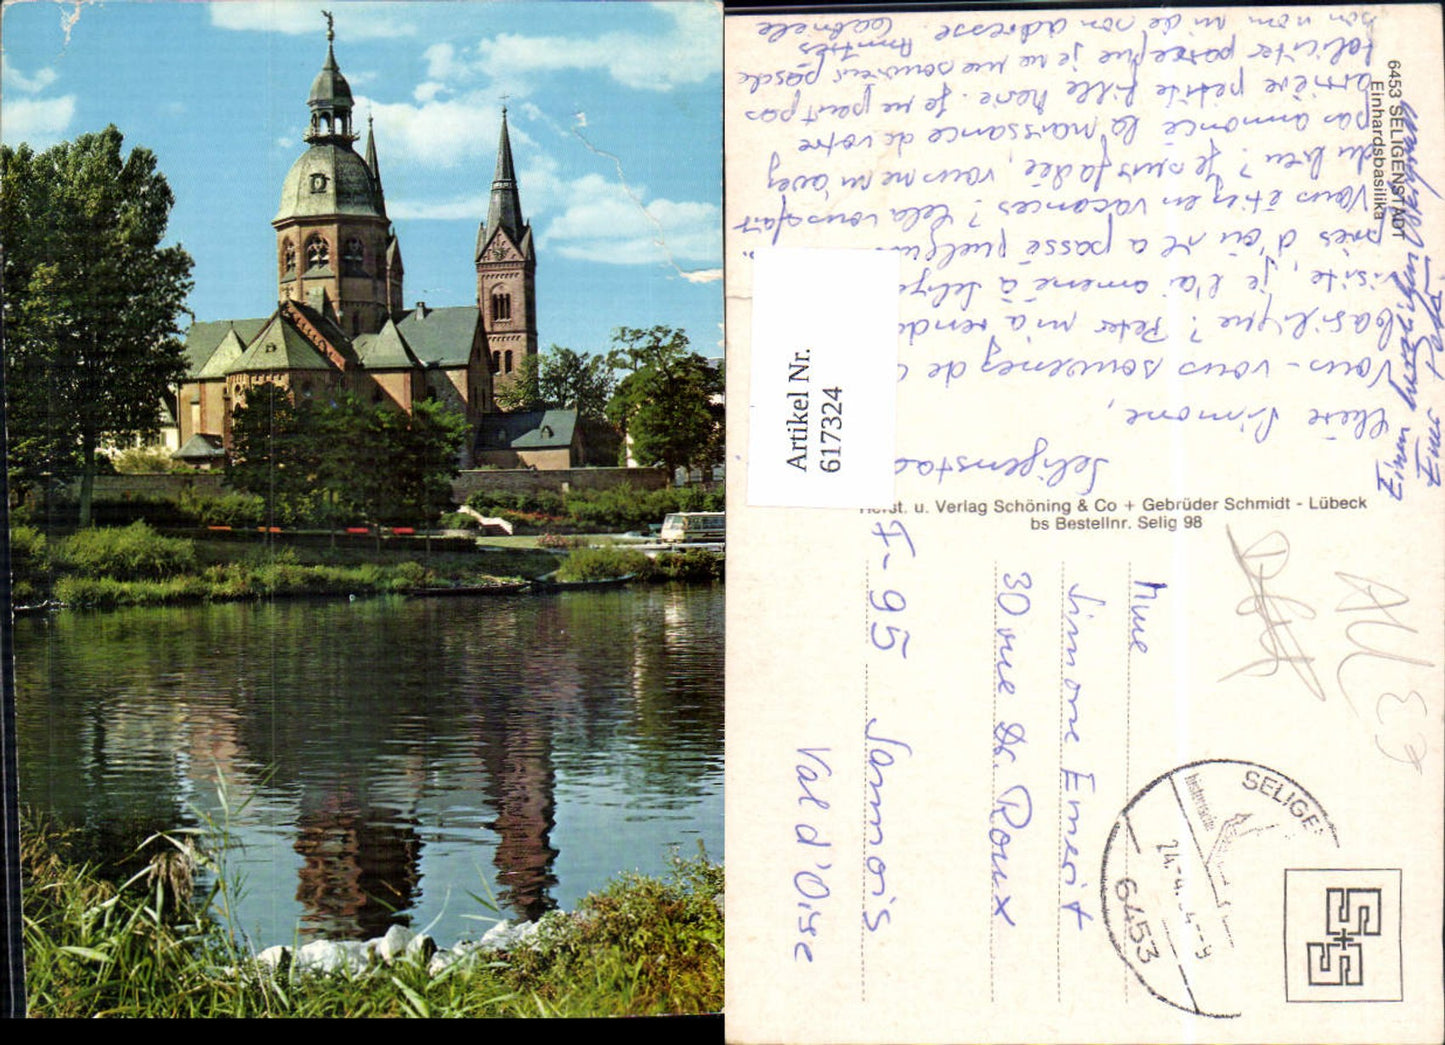 6453 SELIGENSTADT
Einhardsbasilika
Seligenstad
Chère Simone,
Vous-vous souvenez de
basilique? Peter m'a rend
visite, je l'ai amené à Selige
près d'où il a passé quelques
Vous étiez en vacances? Cela vous fait
du bien? Je suis fadée, vous ne m'avez
pas annoncé la naissance de votre
arrière petite fille. Je ne peut pas
féliciter parce que je ne me souviens pas de
son nom ni de son adresse. Amitiés
Gabriele
Artikel Nr.
617324
Herst. u. Verlag Schöning & Co + Gebrüder Schmidt - Lübeck
bs Bestellnr. Selig 98
Mme
Simone Emerit
30 rue Dr. Roux
F-95 Sannois
Val d'Oise
SELIGE
historische
24.-4.-
6453